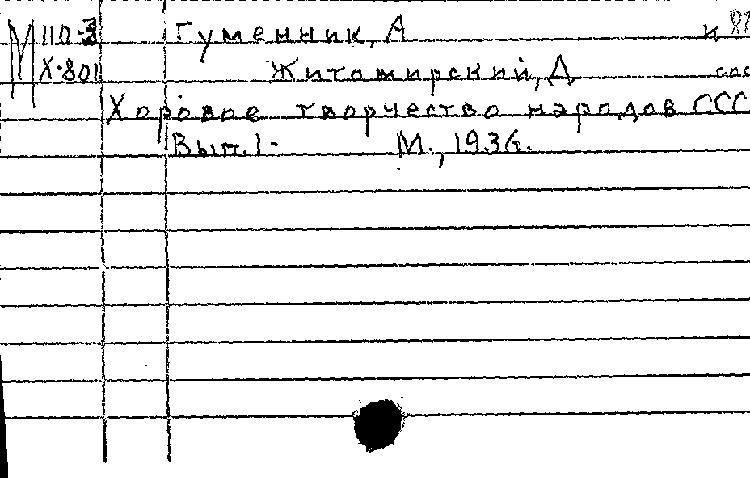 М 110-3 Гуменник, А и
Х-801 Житомирский, Д. сос
Хоровое творчество народов ССС
Вып. 1. М., 1936.